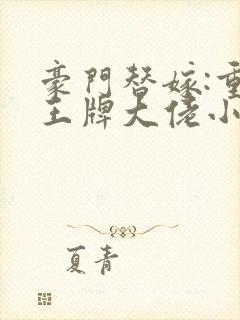 豪門替嫁:重
王牌大佬小
夏青